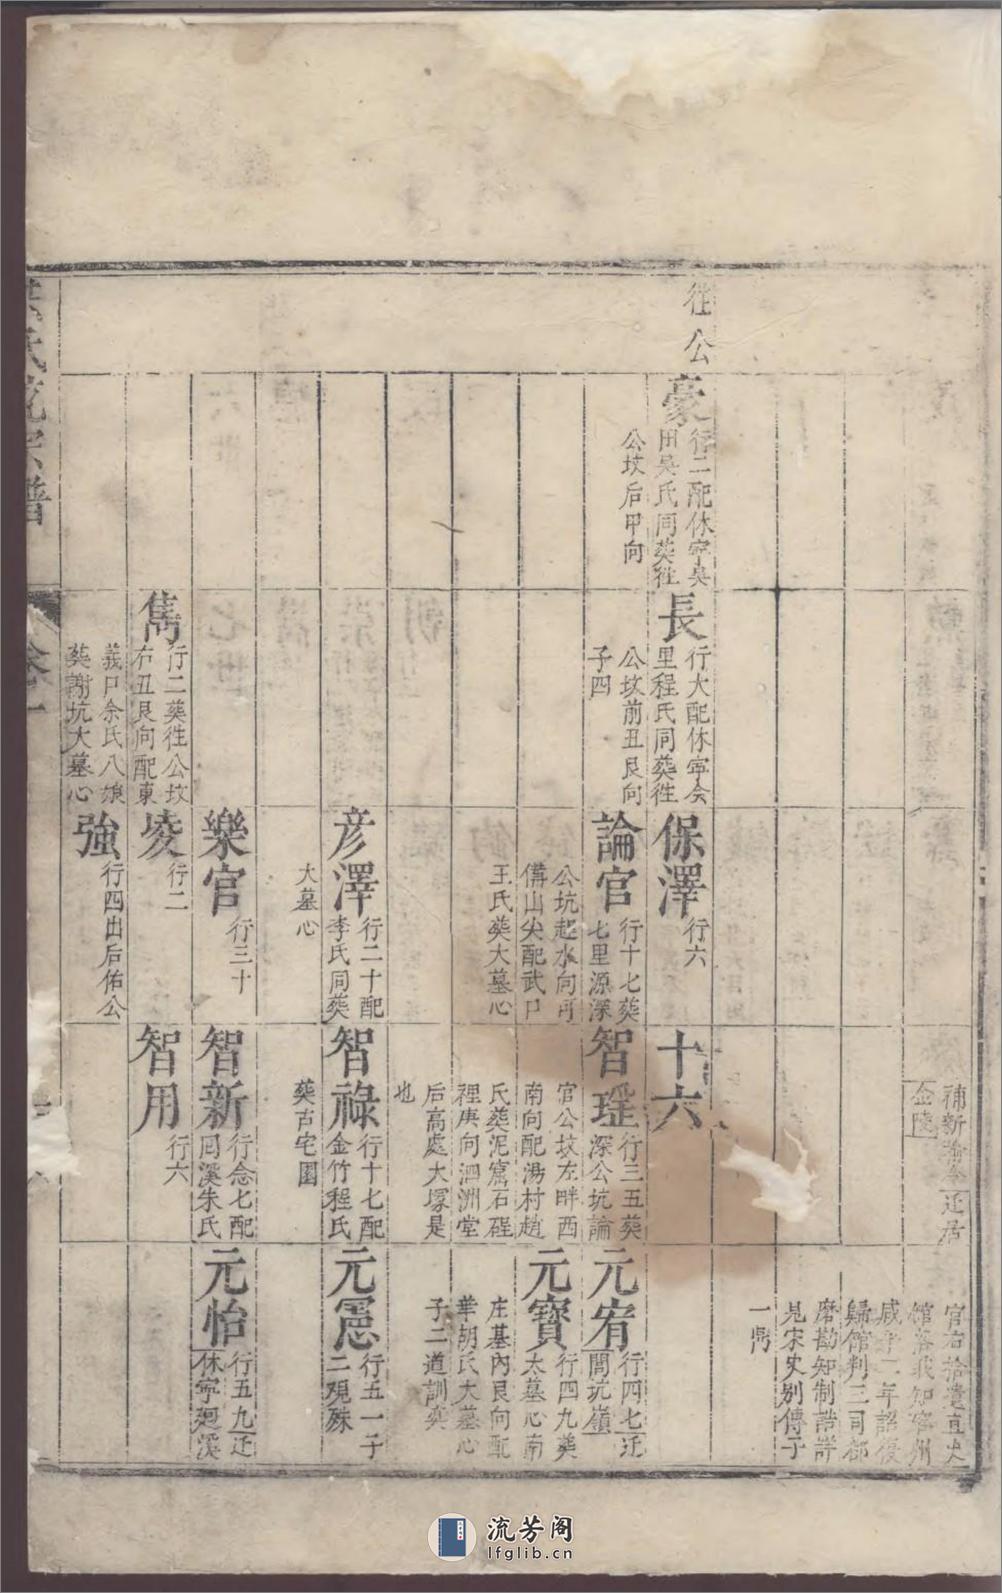 補新喻令
迁居
金陵
官右拾遺直史
館落
知寧州
咸平二年詔復
歸館判三司都
磨勘知制誥詳
見宋史别傳子
一鼎
往公
豪
行二配休寧吳
田吳氏同葵徃
公坟后甲向
長
行大配休寧会
里程氏同葵徃
公坟前丑艮向
子四
保澤
行六
十六
論官
行十七葵
七里源深
公坑起水向可
備山尖配武口
王氏葵大墓心
智瑶
行三五葵
深公坑論
官公坟左畔西
南向配湯村趙
氏葵泥窩石硔
裡庚向泗洲堂
后高處大塚是
也
元宥
行四七迁
間坑嶺
元寶
行四九葵
大墓心南
庄基內艮向配
華胡氏大墓心
子二道訓奕
彥澤
行二十配
李氏同葵
大墓心
智祿
行十七配
金竹程氏
葵古宅園
元慝
行五一子
二現殊
樂官
行三十
智新
行念七配
囘溪朱氏
元怡
行五九迁
休寧廻溪
雋
行二葵徃公坟
右丑艮向配東
義口余氏八娘
葵謝坑大墓心
埈
行二
智用
行六
強
行四出后佑公
氏統宗譜
卷一
流芳阁
lfglib.cn